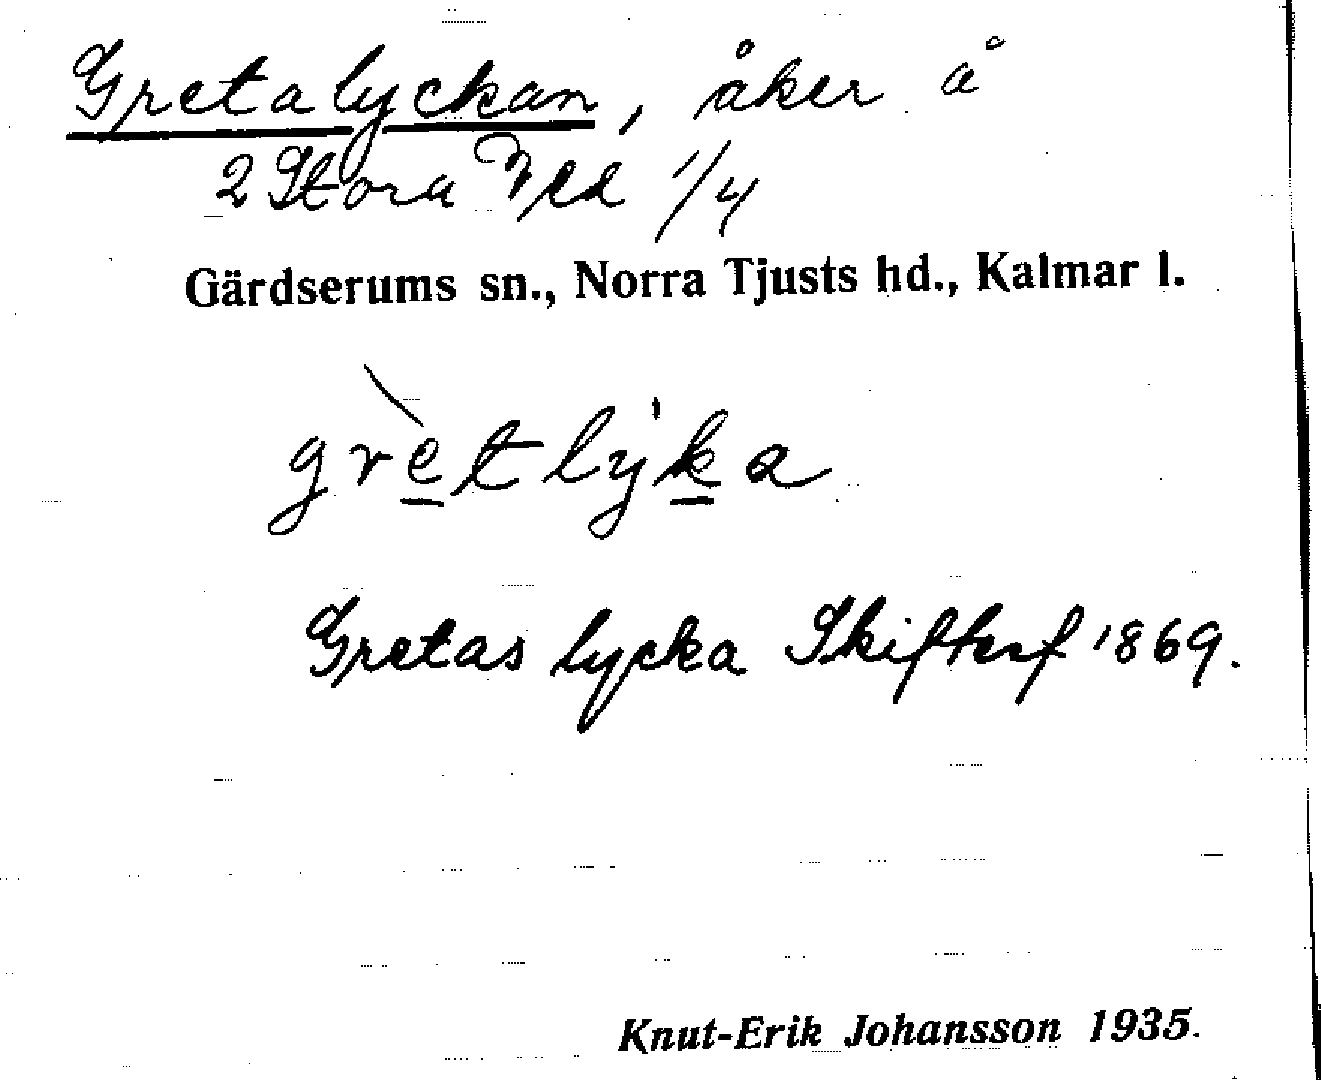 Gretalyckan, åker å
2 Stora Ved 1/4
Gärdserums sn., Norra Tjusts hd., Kalmar l.
grètlyka
Gretas lycka Skifterf 1869.
Knut-Erik Johansson 1935.